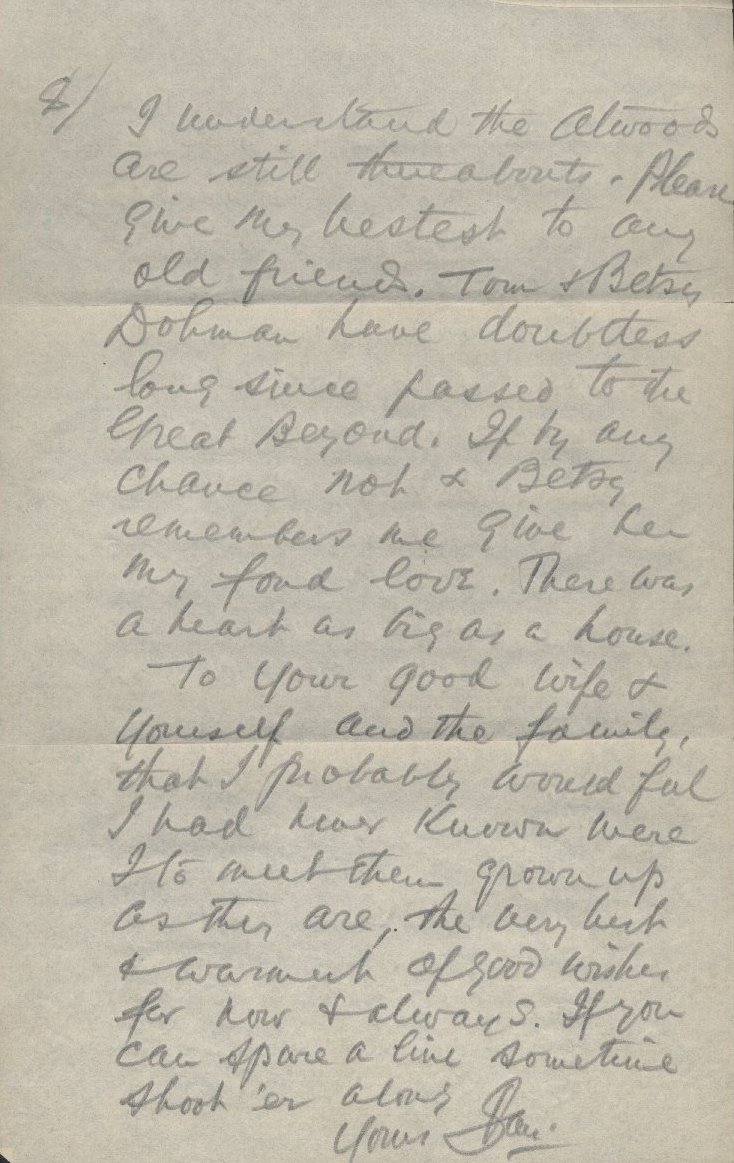 8/ I understand the Atwoods
are still thereabouts. Please
give my bestest to any
old friends. Tom & Betsy
Dohman have doubtless
long since passed to the
Great Beyond. If by any
chance not & Betsy
remembers me give her
my fond love. There was
a heart as big as a house.
To your good wife &
yourself and the family,
that I probably would feel
I had never known were
I to meet them grown up
as they are, the very best
& warmest of good wishes
for now & always. If you
can spare a line sometime
shoot 'er along
Yours